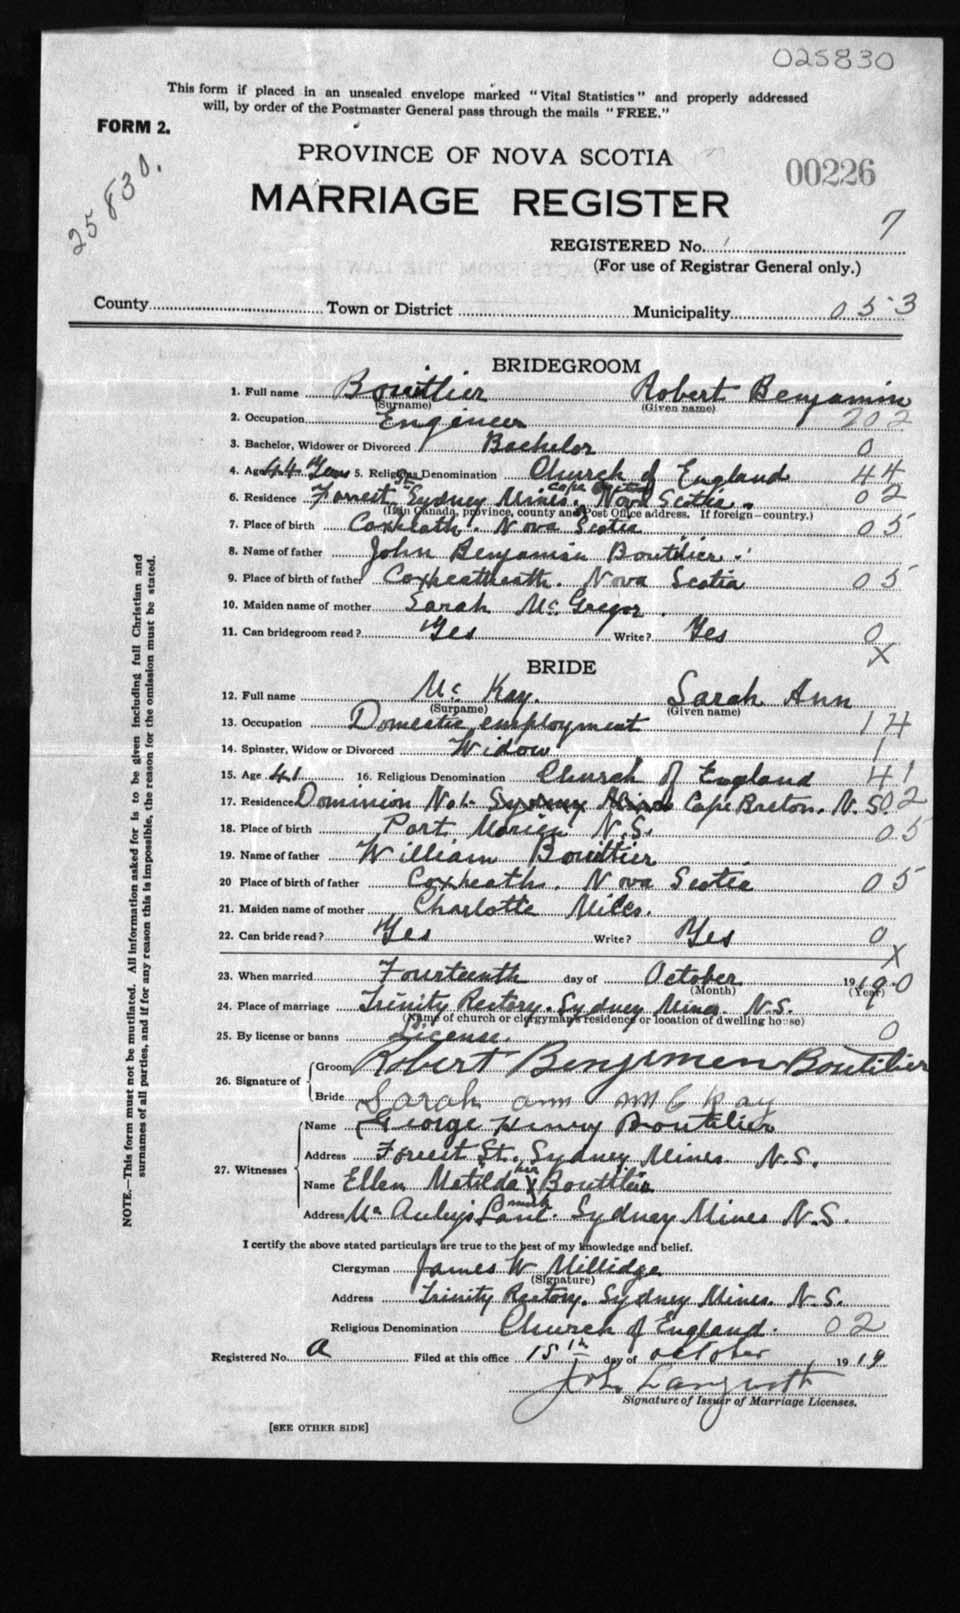 025830
This form if placed in an unsealed envelope marked "Vital Statistics" and properly addressed
will, by order of the Postmaster General pass through the mails "FREE."
FORM 2.
25830.
PROVINCE OF NOVA SCOTIA
00226
MARRIAGE REGISTER
7
REGISTERED No.
(For use of Registrar General only.)
County Town or District Municipality 053
BRIDEGROOM
1. Full name Boutilier Robert Benjamin
(Surname) (Given name)
2. Occupation Engineer 202
3. Bachelor, Widower or Divorced Bachelor 0
4. Age 44 Years 5. Religious Denomination Church of England 44
6. Residence Forrest St. Sydney Mines. Cape Breton Nova Scotia. 02
(If in Canada, province, county and Post Office address. If foreign—country.)
7. Place of birth Coxheath. Nova Scotia 05
8. Name of father John Benjamin Boutilier.
9. Place of birth of father Coxheatheath. Nova Scotia 05
10. Maiden name of mother Sarah McGregor.
11. Can bridegroom read? Yes Write? Yes 0
X
BRIDE
12. Full name McKay. Sarah Ann
(Surname) (Given name)
13. Occupation Domestic employment 14
14. Spinster, Widow or Divorced Widow 1
15. Age 41 16. Religious Denomination Church of England 41
17. Residence Dominion No 1. Sydney Mines Cape Breton. N.S. 02
18. Place of birth Port Morien N.S. 05
19. Name of father William Boutilier
20 Place of birth of father Coxheath. Nova Scotia 05
21. Maiden name of mother Charlotte Miles.
22. Can bride read? Yes Write? Yes 0
X
23. When married Fourteenth day of October 1919 0
(Month) (Year)
24. Place of marriage Trinity Rectory. Sydney Mines. N.S.
(Name of church or clergyman's residence or location of dwelling house)
25. By license or banns License. 0
26. Signature of Groom Robert Benjemen Boutilier
Bride Sarah ann McKay
27. Witnesses Name George Henry Boutilier
Address Forrest St. Sydney Mines N.S.
Name Ellen Matilda her X mark Boutilier
Address Sydney Mines N.S.
I certify the above stated particulars are true to the best of my knowledge and belief.
Clergyman James W Millidge
(Signature)
Address Trinity Rectory. Sydney Mines. N.S.
Religious Denomination Church of England. 02
Registered No. a Filed at this office 15th day of October 1919
John
Signature of Issuer of Marriage Licenses.
[SEE OTHER SIDE]
NOTE.—This form must not be mutilated. All information asked for is to be given including full Christian and
surnames of all parties, and if for any reason this is impossible, the reason for the omission must be stated.